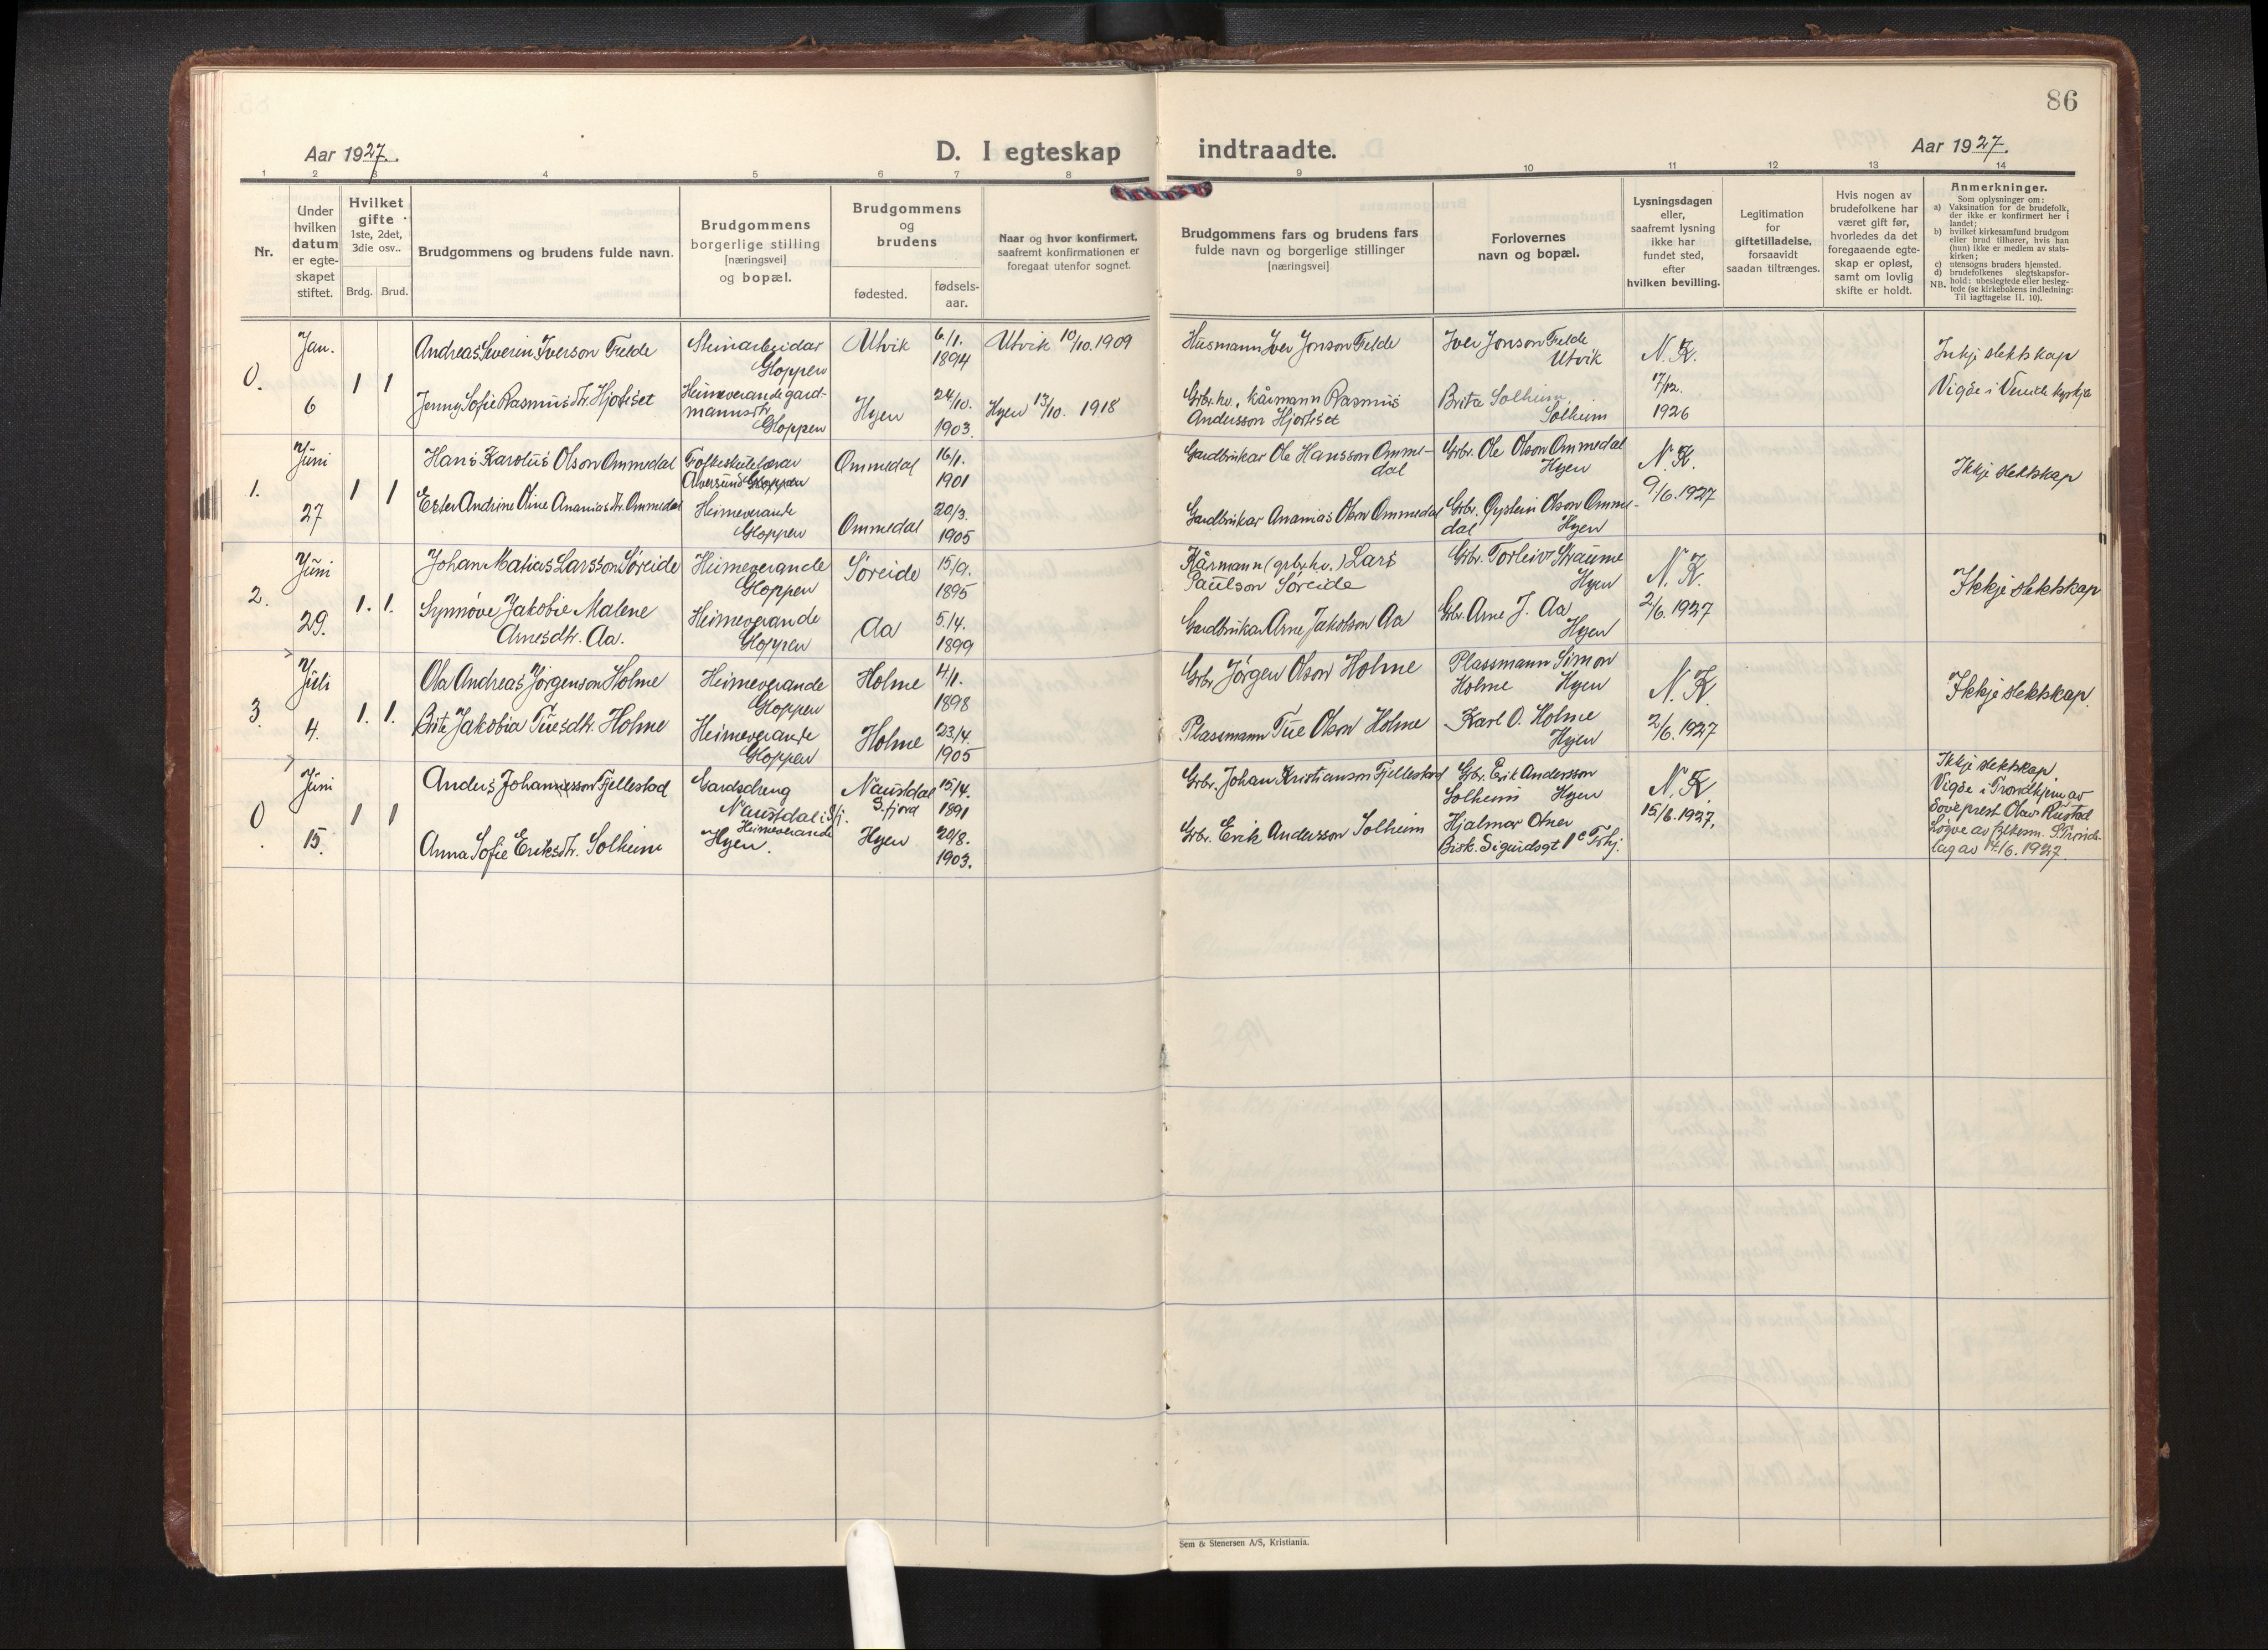 86
Aar 1927.
D. I egteskap
indtraadte.
Aar 1927.
1 2 3 4 5 6 7 8 9 10 11 12 13 14
Nr.
Under
hvilken
datum
er egte-
skapet
stiftet.
Hvilket
gifte
1ste, 2det,
3die osv..
Brdg. Brud.
Brudgommens og brudens fulde navn.
Brudgommens
borgerlige stilling
[næringsvei]
og bopæl.
Brudgommens
og
brudens
fødested.
fødsels-
aar.
Naar og hvor konfirmert,
saafremt konfirmationen er
foregaat utenfor sognet.
Brudgommens fars og brudens fars
fulde navn og borgerlige stillinger
[næringsvei]
Forlovernes
navn og bopæl.
Lysningsdagen
eller,
saafremt lysning
ikke har
fundet sted,
efter
hvilken bevilling.
Legitimation
for
giftetilladelse,
forsaavidt
saadan tiltrænges.
Hvis nogen av
brudefolkene har
været gift før,
hvorledes da det
foregaaende egte-
skap er opløst,
samt om lovlig
skifte er holdt.
Anmerkninger.
Som oplysninger om:
a) Vaksination for de brudefolk,
der ikke er konfirmert her i
landet;
b) hvilket kirkesamfund brudgom
eller brud tilhører, hvis han
(hun) ikke er medlem av stats-
kirken;
c) utensogns bruders hjemsted.
d) brudefolkenes slegtskapsfor-
hold: ubeslegtede eller besleg-
NB. tede (se kirkebokens indledning:
Til iagttagelse II. 10).
0.
Jan.
6
1 1
Andreas Severin Iverson Felde
Steinarbeidar
Gloppen
Utvik
6/1.
1894
Utvik 10/10. 1909
Husmann Iver Jonson Felde
Iver Jonson Felde
Utvik
N. K.
17/12.
1926
Inkje slektskap
Vigde i Vereide kyrkja
Jenny Sofie Rasmusdtr. Hjorteset
Heimeverande gard-
mannsdtr.
Gloppen
Hyen
24/10.
1903.
Hyen 13/10. 1918
Grbr. hv. kårmann Rasmus
Andersson Hjorteset
Brita Solheim,
Solheim
1.
Juni
27
1 1
Hans Karolus Olson Ommedal
Folkeskulelærar
Alversund Gloppen
Ommedal
16/1.
1901
Gardbrukar Ole Hansson Omme-
dal
Grbr. Ole Olson Ommedal
Hyen
N. K.
9/6. 1927
Ikkje slektskap
Ester Andrine Oline Ananiasdtr. Ommedal
Heimeverande
Gloppen
Ommedal
20/3.
1905
Gardbrukar Ananias Olson Ommedal
Grbr. Øystein Olson Omme-
dal Hyen
2.
Juni
29.
1. 1.
Johan Matias Larsson Søreide
Heimeverande
Gloppen
Søreide
15/9.
1895
Kårmann (grbr. hv.) Lars
Paulson Søreide
Grbr. Torleiv Straume
Hyen
N. K.
2/6. 1927
Ikkje slektskap
Synnøve Jakobie Malene
Arnesdtr. Aa.
Heimeverande
Gloppen
Aa
5/4.
1899
Gardbrukar Arne Jakobson Aa
Gbr. Arne J. Aa
Hyen
3.
Juli
4.
1. 1.
Ola Andreas Jørgenson Holme
Heimeverande
Gloppen
Holme
4/1.
1898
Grbr. Jørgen Olson Holme
Plassmann Simon
Holme Hyen
N. K.
2/6. 1927
Ikkje slektskap.
Brite Jakobia Tuesdtr. Holme
Heimeverande
Gloppen
Holme
23/4.
1905
Plassmann Tue Olson Holme
Karl O. Holme
Hyen
0
Juni
15.
1 1
Anders Johannesson Fjellestad
Gardsdreng
Naustdal i S/fj.
Naustdal
S. fjord
15/4.
1891
Grbr. Johan Kristianson Fjellestad
Grbr. Erik Andersson
Solheim Hyen
N. K.
15/6. 1927.
Ikkje slektskap.
Vigde i Trondhjem av
Soveprest Olav Rustad
Løyve av fylkesm. S. Trønde-
lag av 14/6. 1927.
Anna Sofie Eriksdtr. Solheim
Heimeverande
Hyen.
Hyen
20/8.
1903.
Grbr. Erik Andersson Solheim
Hjalmar Otner
Bisk. Sigurdsgt 1c Trhj.
Sem & Stenersen A/S, Kristiania.